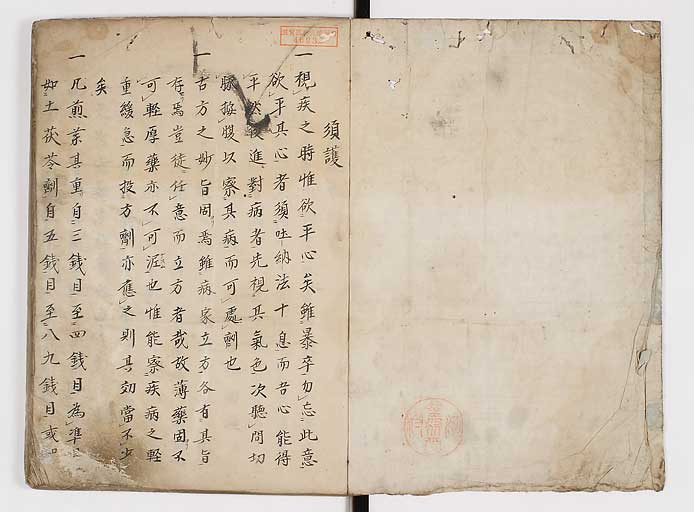 須護
一視疾之時惟欲平心矣雖暴卒勿忘此意
欲平其心者須吐納法十息而吾心能得
平然後進對病者先視其氣色次聽問切
脉按腹以察其病而可處劑也
一古方之妙旨固焉雖病家立方各有其旨
存焉豈徒任意而立方者哉故薄藥固不
可輕厚藥亦不可泥也惟能察疾病之輕
重緩急而投方劑亦應之則其効當不少
矣
一凡煎藥其重自三錢目至四錢目為準
如土茯苓劑自五錢目至八九錢目或